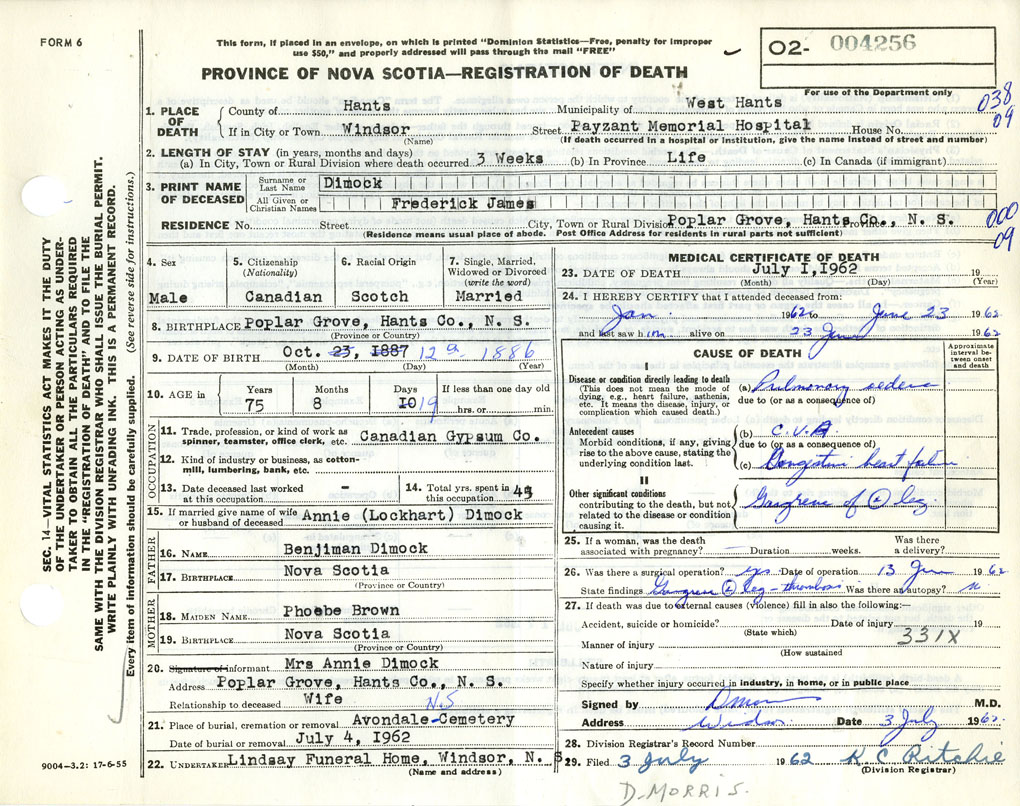 FORM 6
This form, if placed in an envelope, on which is printed "Dominion Statistics—Free, penalty for improper
use $50," and properly addressed will pass through the mail "FREE"
PROVINCE OF NOVA SCOTIA—REGISTRATION OF DEATH
O2- 004256
For use of the Department only
038
09
1. PLACE OF DEATH
County of Hants Municipality of West Hants
If in City or Town Windsor Street Payzant Memorial Hospital House No.
(Name) (If death occurred in a hospital or institution, give the name instead of street and number)
2. LENGTH OF STAY (in years, months and days)
(a) In City, Town or Rural Division where death occurred 3 Weeks (b) In Province Life (c) In Canada (if immigrant)
3. PRINT NAME OF DECEASED
Surname or Last Name Dimock
All Given or Christian Names Frederick James
RESIDENCE No. Street City, Town or Rural Division Poplar Grove, Hants Co., N. S. Province
(Residence means usual place of abode. Post Office Address for residents in rural parts not sufficient)
000
09
4. Sex
Male
5. Citizenship
(Nationality)
Canadian
6. Racial Origin
Scotch
7. Single, Married,
Widowed or Divorced
(write the word)
Married
8. BIRTHPLACE Poplar Grove, Hants Co., N. S.
(Province or Country)
9. DATE OF BIRTH Oct. 23, 1887 12 1886
(Month) (Day) (Year)
10. AGE in
Years
75
Months
8
Days
10 19
If less than one day old
hrs. or min.
OCCUPATION
11. Trade, profession, or kind of work as
spinner, teamster, office clerk, etc. Canadian Gypsum Co.
12. Kind of industry or business, as cotton-
mill, lumbering, bank, etc.
13. Date deceased last worked
at this occupation -
14. Total yrs. spent in
this occupation 45
15. If married give name of wife
or husband of deceased Annie (Lockhart) Dimock
FATHER
16. NAME Benjiman Dimock
17. BIRTHPLACE Nova Scotia
(Province or Country)
MOTHER
18. MAIDEN NAME Phoebe Brown
19. BIRTHPLACE Nova Scotia
(Province or Country)
20. Signature of informant Mrs Annie Dimock
Address Poplar Grove, Hants Co., N. S.
Relationship to deceased Wife N.S
21. Place of burial, cremation or removal Avondale-Cemetery
Date of burial or removal July 4, 1962
22. UNDERTAKER Lindsay Funeral Home, Windsor, N. S
(Name and address)
MEDICAL CERTIFICATE OF DEATH
23. DATE OF DEATH July 1, 1962 19
(Month) (Day) (Year)
24. I HEREBY CERTIFY that I attended deceased from:
Jan. 1962 to June 23 1962
and last saw him alive on 23 June 1962
CAUSE OF DEATH
Approximate
interval be-
tween onset
and death
I
Disease or condition directly leading to death
(This does not mean the mode of
dying, e.g., heart failure, asthenia,
etc. It means the disease, injury, or
complication which caused death.)
(a) Pulmonary oedema
due to (or as a consequence of)
Antecedent causes
Morbid conditions, if any, giving
rise to the above cause, stating the
underlying condition last.
(b) C.V.A
due to (or as a consequence of)
(c) Congestive heart failure
II
Other significant conditions
contributing to the death, but not
related to the disease or condition
causing it.
Gangrene of leg
25. If a woman, was the death
associated with pregnancy? Duration weeks. Was there
a delivery?
26. Was there a surgical operation? yes Date of operation 13 Jun 1962
State findings Gangrene leg - thrombosis Was there an autopsy? no
27. If death was due to external causes (violence) fill in also the following:—
Accident, suicide or homicide? Date of injury 19
(State which)
331X
Manner of injury
(How sustained
Nature of injury
Specify whether injury occurred in industry, in home, or in public place
Signed by M.D.
Address Windsor Date 3 July 1962
28. Division Registrar's Record Number
29. Filed 3 July 1962 K C Ritchie
(Division Registrar)
D. MORRIS.
9004—3.2: 17-6-55
SEC. 14—VITAL STATISTICS ACT MAKES IT THE DUTY
OF THE UNDERTAKER OR PERSON ACTING AS UNDER-
TAKER TO OBTAIN ALL THE PARTICULARS REQUIRED
IN THE "REGISTRATION OF DEATH" AND TO FILE THE
SAME WITH THE DIVISION REGISTRAR WHO SHALL ISSUE THE BURIAL PERMIT.
WRITE PLAINLY WITH UNFADING INK. THIS IS A PERMANENT RECORD.
Every item of information should be carefully supplied. (See reverse side for instructions.)